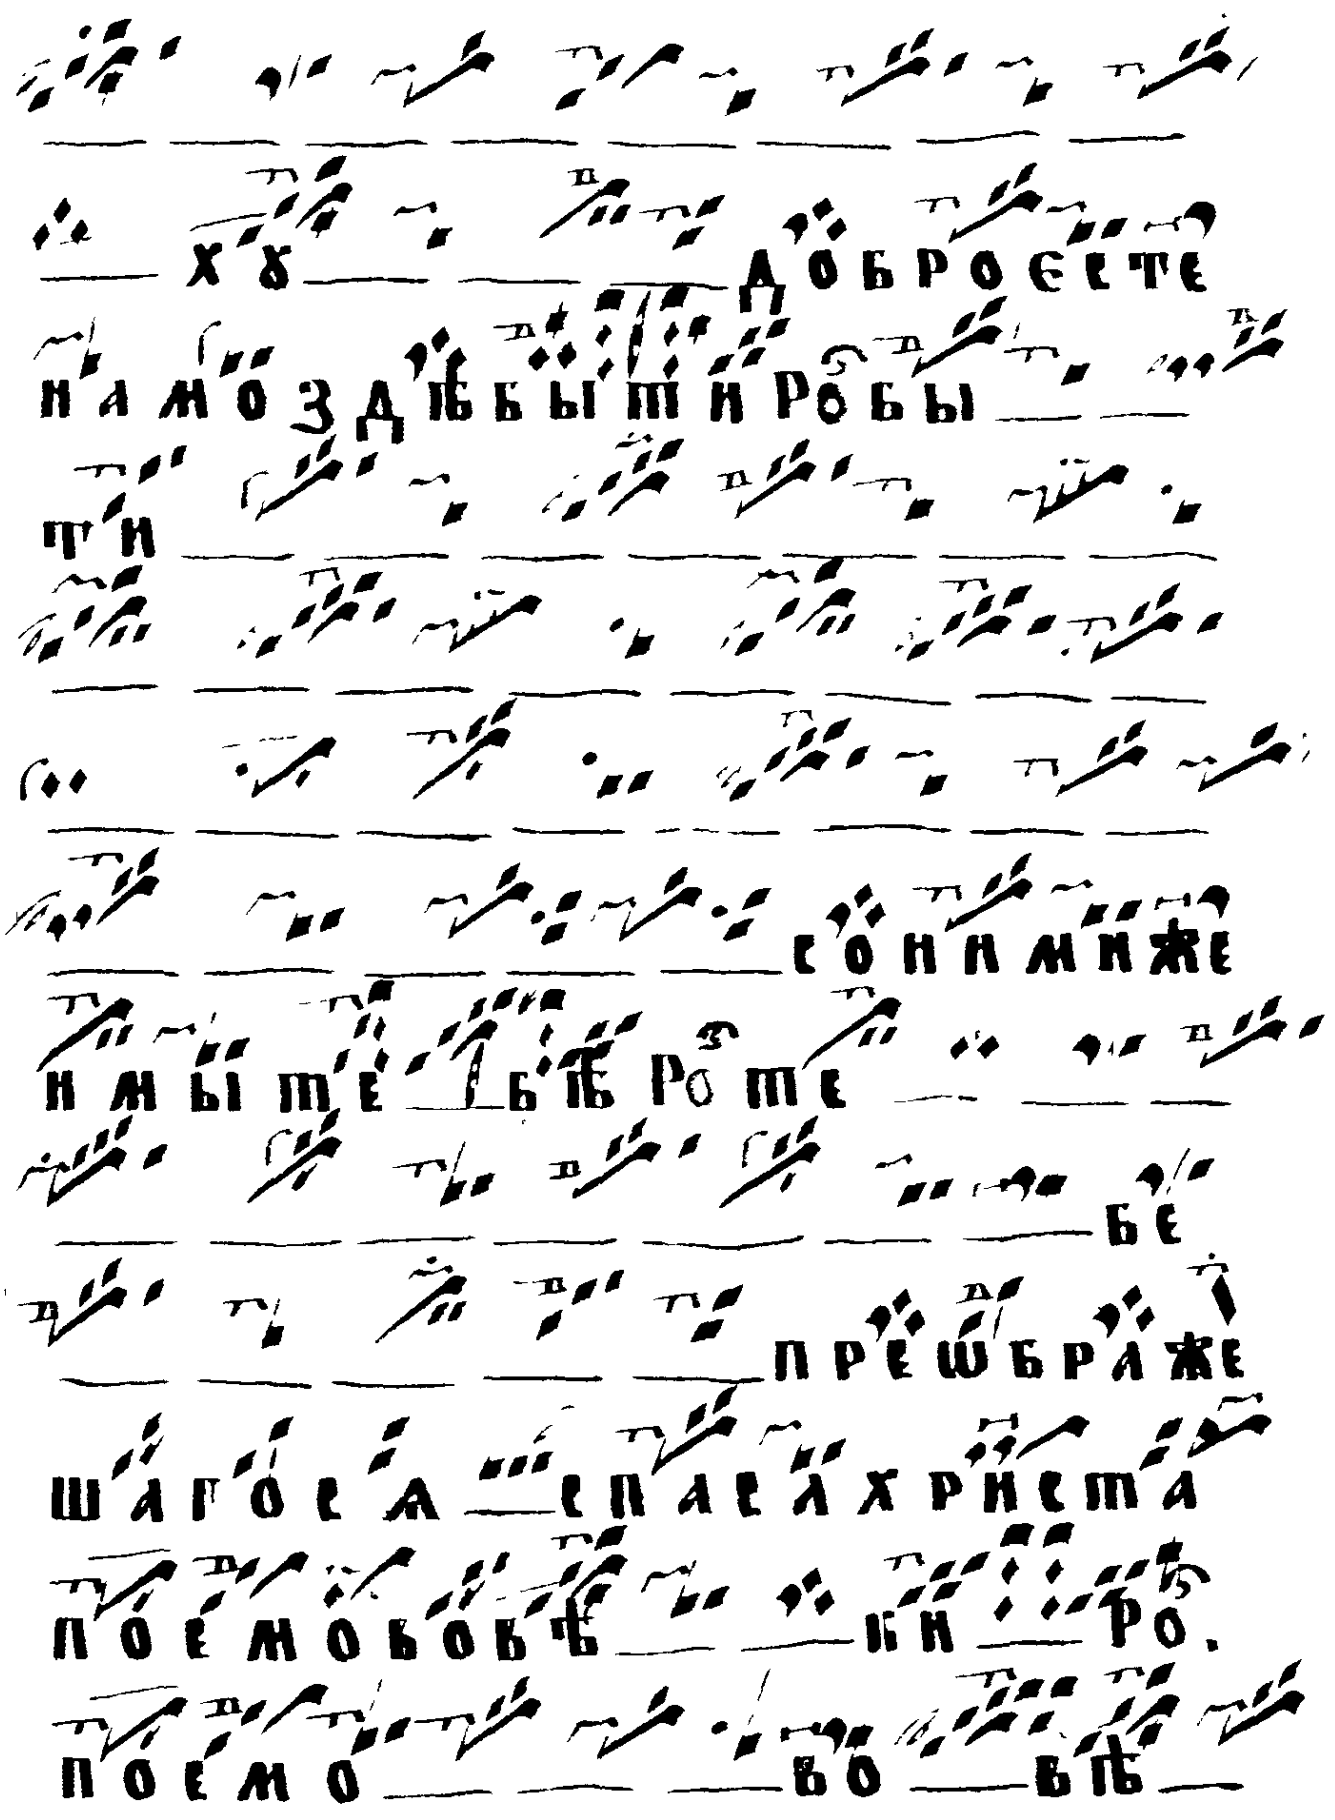 хѹ доброєсте
намоздѣбытиробы
ти
сонимиже
имыте бѣроте
бе
преѡбраже
шагосѧ спасахриста
поемововѣ ки ро.
поемо во вѣ